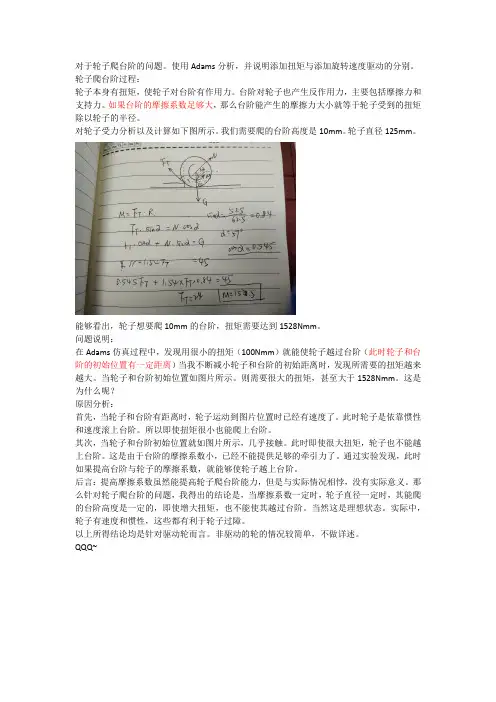 对于轮子爬台阶的问题。使用 Adams 分析，并说明添加扭矩与添加旋转速度驱动的分别。
轮子爬台阶过程：
轮子本身有扭矩，使轮子对台阶有作用力。台阶对轮子也产生反作用力，主要包括摩擦力和
支持力。如果台阶的摩擦系数足够大，那么台阶能产生的摩擦力大小就等于轮子受到的扭矩
除以轮子的半径。
对轮子受力分析以及计算如下图所示。我们需要爬的台阶高度是 10mm。轮子直径 125mm。
N
G
M = F_T · R
F_T · sin α = N cos α
= G
= 45
= 0.84
α = 57°
cos α = 0.545
0.545 F_T + 1.54 × F_T × 0.84 = 45
能够看出，轮子想要爬 10mm 的台阶，扭矩需要达到 1528Nmm。
问题说明：
在 Adams 仿真过程中，发现用很小的扭矩（100Nmm）就能使轮子越过台阶（此时轮子和台
阶的初始位置有一定距离）当我不断减小轮子和台阶的初始距离时，发现所需要的扭矩越来
越大。当轮子和台阶初始位置如图片所示。则需要很大的扭矩，甚至大于 1528Nmm。这是
为什么呢？
原因分析：
首先，当轮子和台阶有距离时，轮子运动到图片位置时已经有速度了。此时轮子是依靠惯性
和速度滚上台阶。所以即使扭矩很小也能爬上台阶。
其次，当轮子和台阶初始位置就如图片所示，几乎接触。此时即使很大扭矩，轮子也不能越
上台阶。这是由于台阶的摩擦系数小，已经不能提供足够的牵引力了。通过实验发现，此时
如果提高台阶与轮子的摩擦系数，就能够使轮子越上台阶。
后言：提高摩擦系数虽然能提高轮子爬台阶能力，但是与实际情况相悖，没有实际意义。那
么针对轮子爬台阶的问题，我得出的结论是，当摩擦系数一定时，轮子直径一定时，其能爬
的台阶高度是一定的，即使增大扭矩，也不能使其越过台阶。当然这是理想状态。实际中，
轮子有速度和惯性，这些都有利于轮子过障。
以上所得结论均是针对驱动轮而言。非驱动的轮的情况较简单，不做详述。
QQQ~